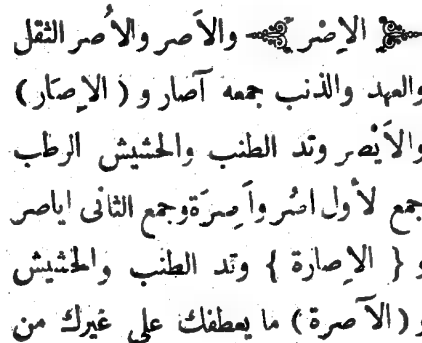 ﴿ الإصْر ﴾ والأَصر والأُصر الثقل
والعهد والذنب جمعه آصار و ( الإصَار )
والأَيْصر وتد الطنب والحشيش الرطب
جمع لأول اصُر وآصِرَة وجمع الثانى اياصر
و { الإصارة } وتد الطنب والحشيش
و ( الآصرة ) ما يعطفك على غيرك من